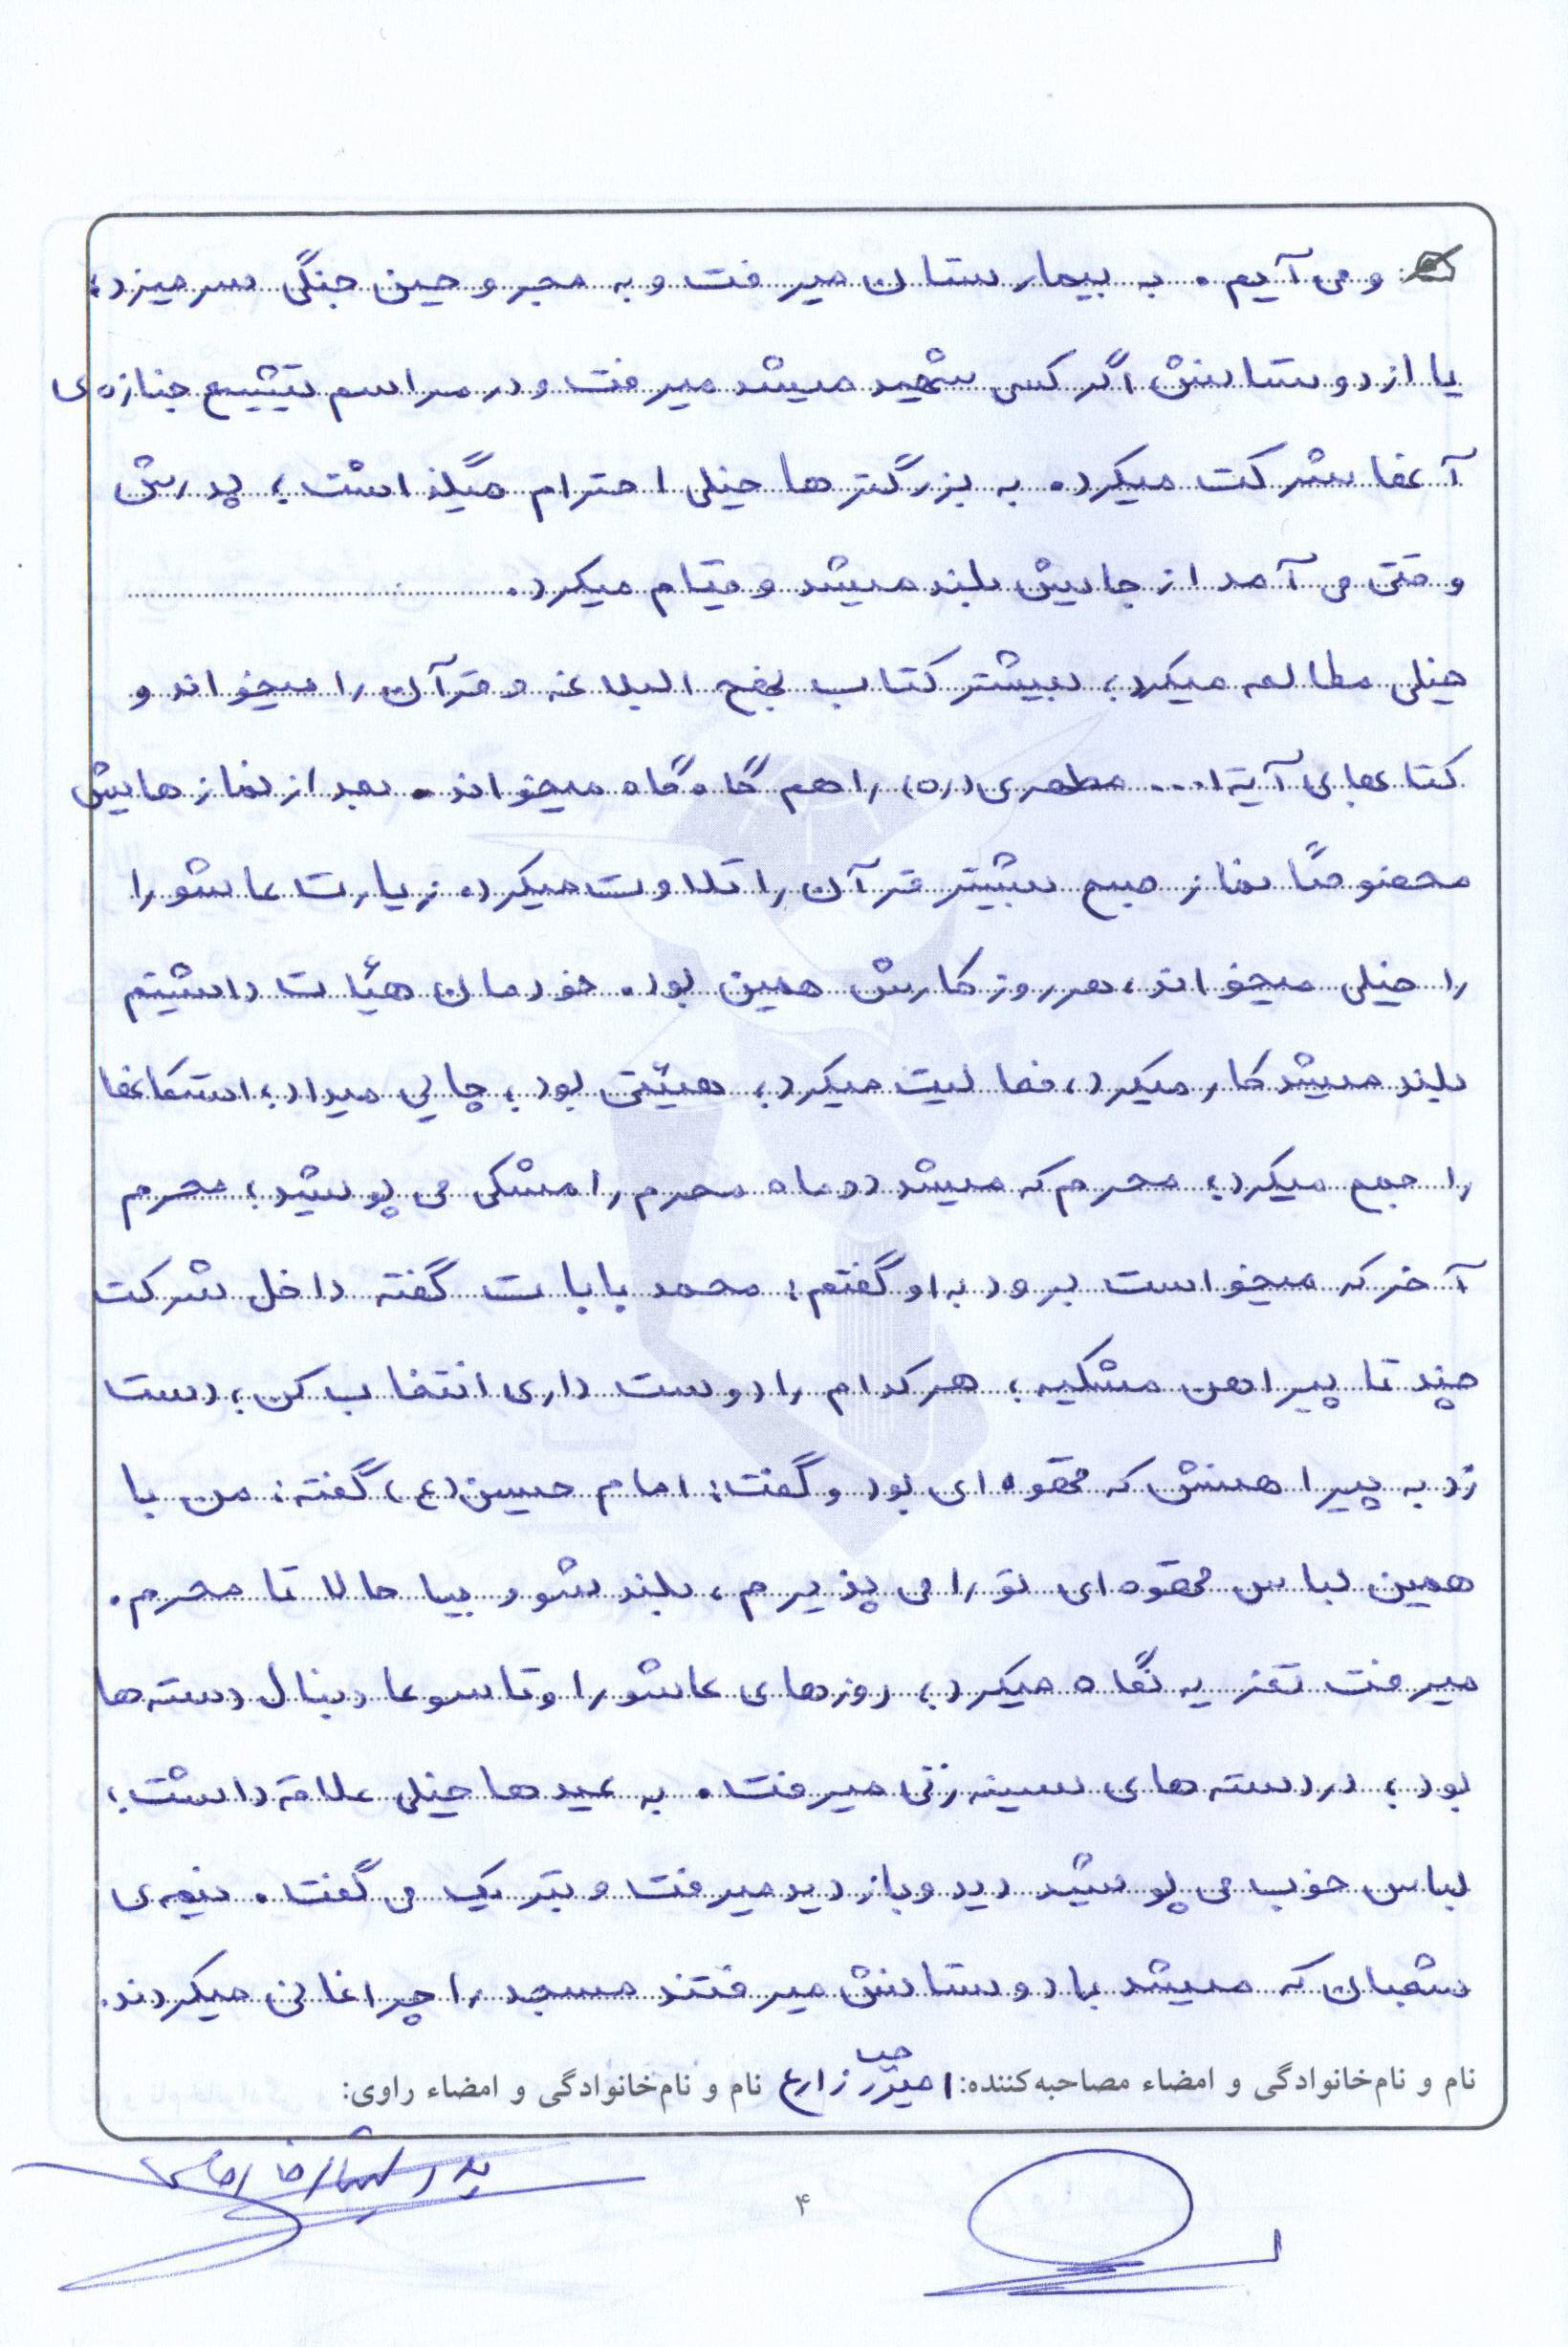 و می آیم. به بیمارستان میرفت و به مجروحین جنگی سرمیزد؛
یا از دوستانش اگر کسی شهید میشد میرفت و در مراسم تشییع جنازه‌ی
آنها شرکت میکرد. به بزرگترها خیلی احترام میگذاشت؛ پدرش
وقتی می آمد از جایش بلند میشد و قیام میکرد.
خیلی مطالعه میکرد؛ بیشتر کتاب نهج البلاغه و قرآن را میخواند و
کتابهای آیة ا... مطهری (ره) را هم گاه گاه میخواند. بعد از نمازهایش
مخصوصاً نماز صبح بیشتر قرآن را تلاوت میکرد. زیارت عاشورا
را خیلی میخواند، هر روز کارش همین بود. خودمان هیأت داشتیم
بلند میشد کار میکرد، فعالیت میکرد؛ هیئتی بود؛ چایی میداد؛ استکانها
را جمع میکرد؛ محرم که میشد دو ماه محرم را مشکی می پوشید؛ محرم
آخر که میخواست برود به او گفتم: محمد بابات گفته داخل شرکت
چند تا پیراهن مشکیه؛ هر کدام را دوست داری انتخاب کن؛ دست
زد به پیراهنش که قهوه ای بود و گفت: امام حسین (ع) گفته: من با
همین لباس قهوه ای تو را می پذیرم، بلند شو و بیا حالا تا محرم.
میرفت تعزیه نگاه میکرد؛ روزهای عاشورا و تاسوعا دنبال دسته ها
بود؛ در دسته های سینه زنی میرفت. به عیدها خیلی علاقه داشت؛
لباس خوب می پوشید دید و بازدید میرفت و تبریک می گفت. نیمه‌ی
شعبان که میشد با دوستانش میرفتند مسجد را چراغانی میکردند.
نام و نام‌خانوادگی و امضاء مصاحبه‌کننده: زارع نام و نام‌خانوادگی و امضاء راوی:
۴